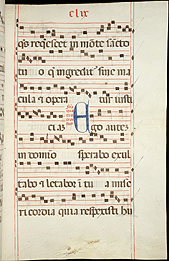 clix
q̃s reqescet in mõte sãcto
tu o q̃ ingredit̃ sine ma
cula & opera tur iusti
ciaȝ Ego autẽ
in domĩo sperabo exul
tabo & letabor ĩ tu a mise
ricordia quia respexisti hu